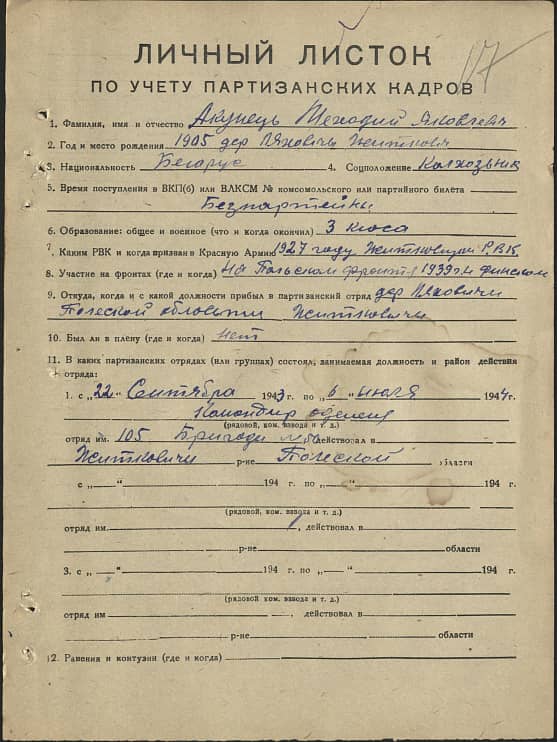 17
ЛИЧНЫЙ ЛИСТОК
ПО УЧЕТУ ПАРТИЗАНСКИХ КАДРОВ
1. Фамилия, имя и отчество Акунець Меходий Яковлевич
2. Год и место рождения 1905 дер Ляховичи Житкович
3. Национальность Беларус 4. Соцположение Колхозьник
5. Время поступления в ВКП(б) или ВЛКСМ № комсомольского или партийного билета
Безпартейны
6. Образование: общее и военное (что и когда окончил) 3 класа
7. Каким РВК и когда призван в Красную Армию 1927 году Житковицки Р.В.К.
8. Участие на фронтах (где и когда) на Польском фронте 1939 г и финском
9. Откуда, когда и с какой должности прибыл в партизанский отряд дер Ляховичи
Полеской области Житковичи
10. Был ли в плену (где и когда) нет
11. В каких партизанских отрядах (или группах) состоял, занимаемая должность и район действия
отряда:
1. с „22“ Сентября 1943 г. по „6“ июля 1944 г.
Командир
(рядовой, ком. взвода и т. д.)
отряд им. 105 Бригады действовал в
Житковичи р-не Полеской области
с „ “ 194 г. по „ “ 194 г.
(рядовой, ком. взвода и т. д.)
отряд им. , действовал в
р-не области
3. с „ “ 194 г. по „ “ 194 г.
(рядовой, ком. взвода и т. д.)
отряд им , действовал в
р-не области
12. Ранения и контузии (где и когда)